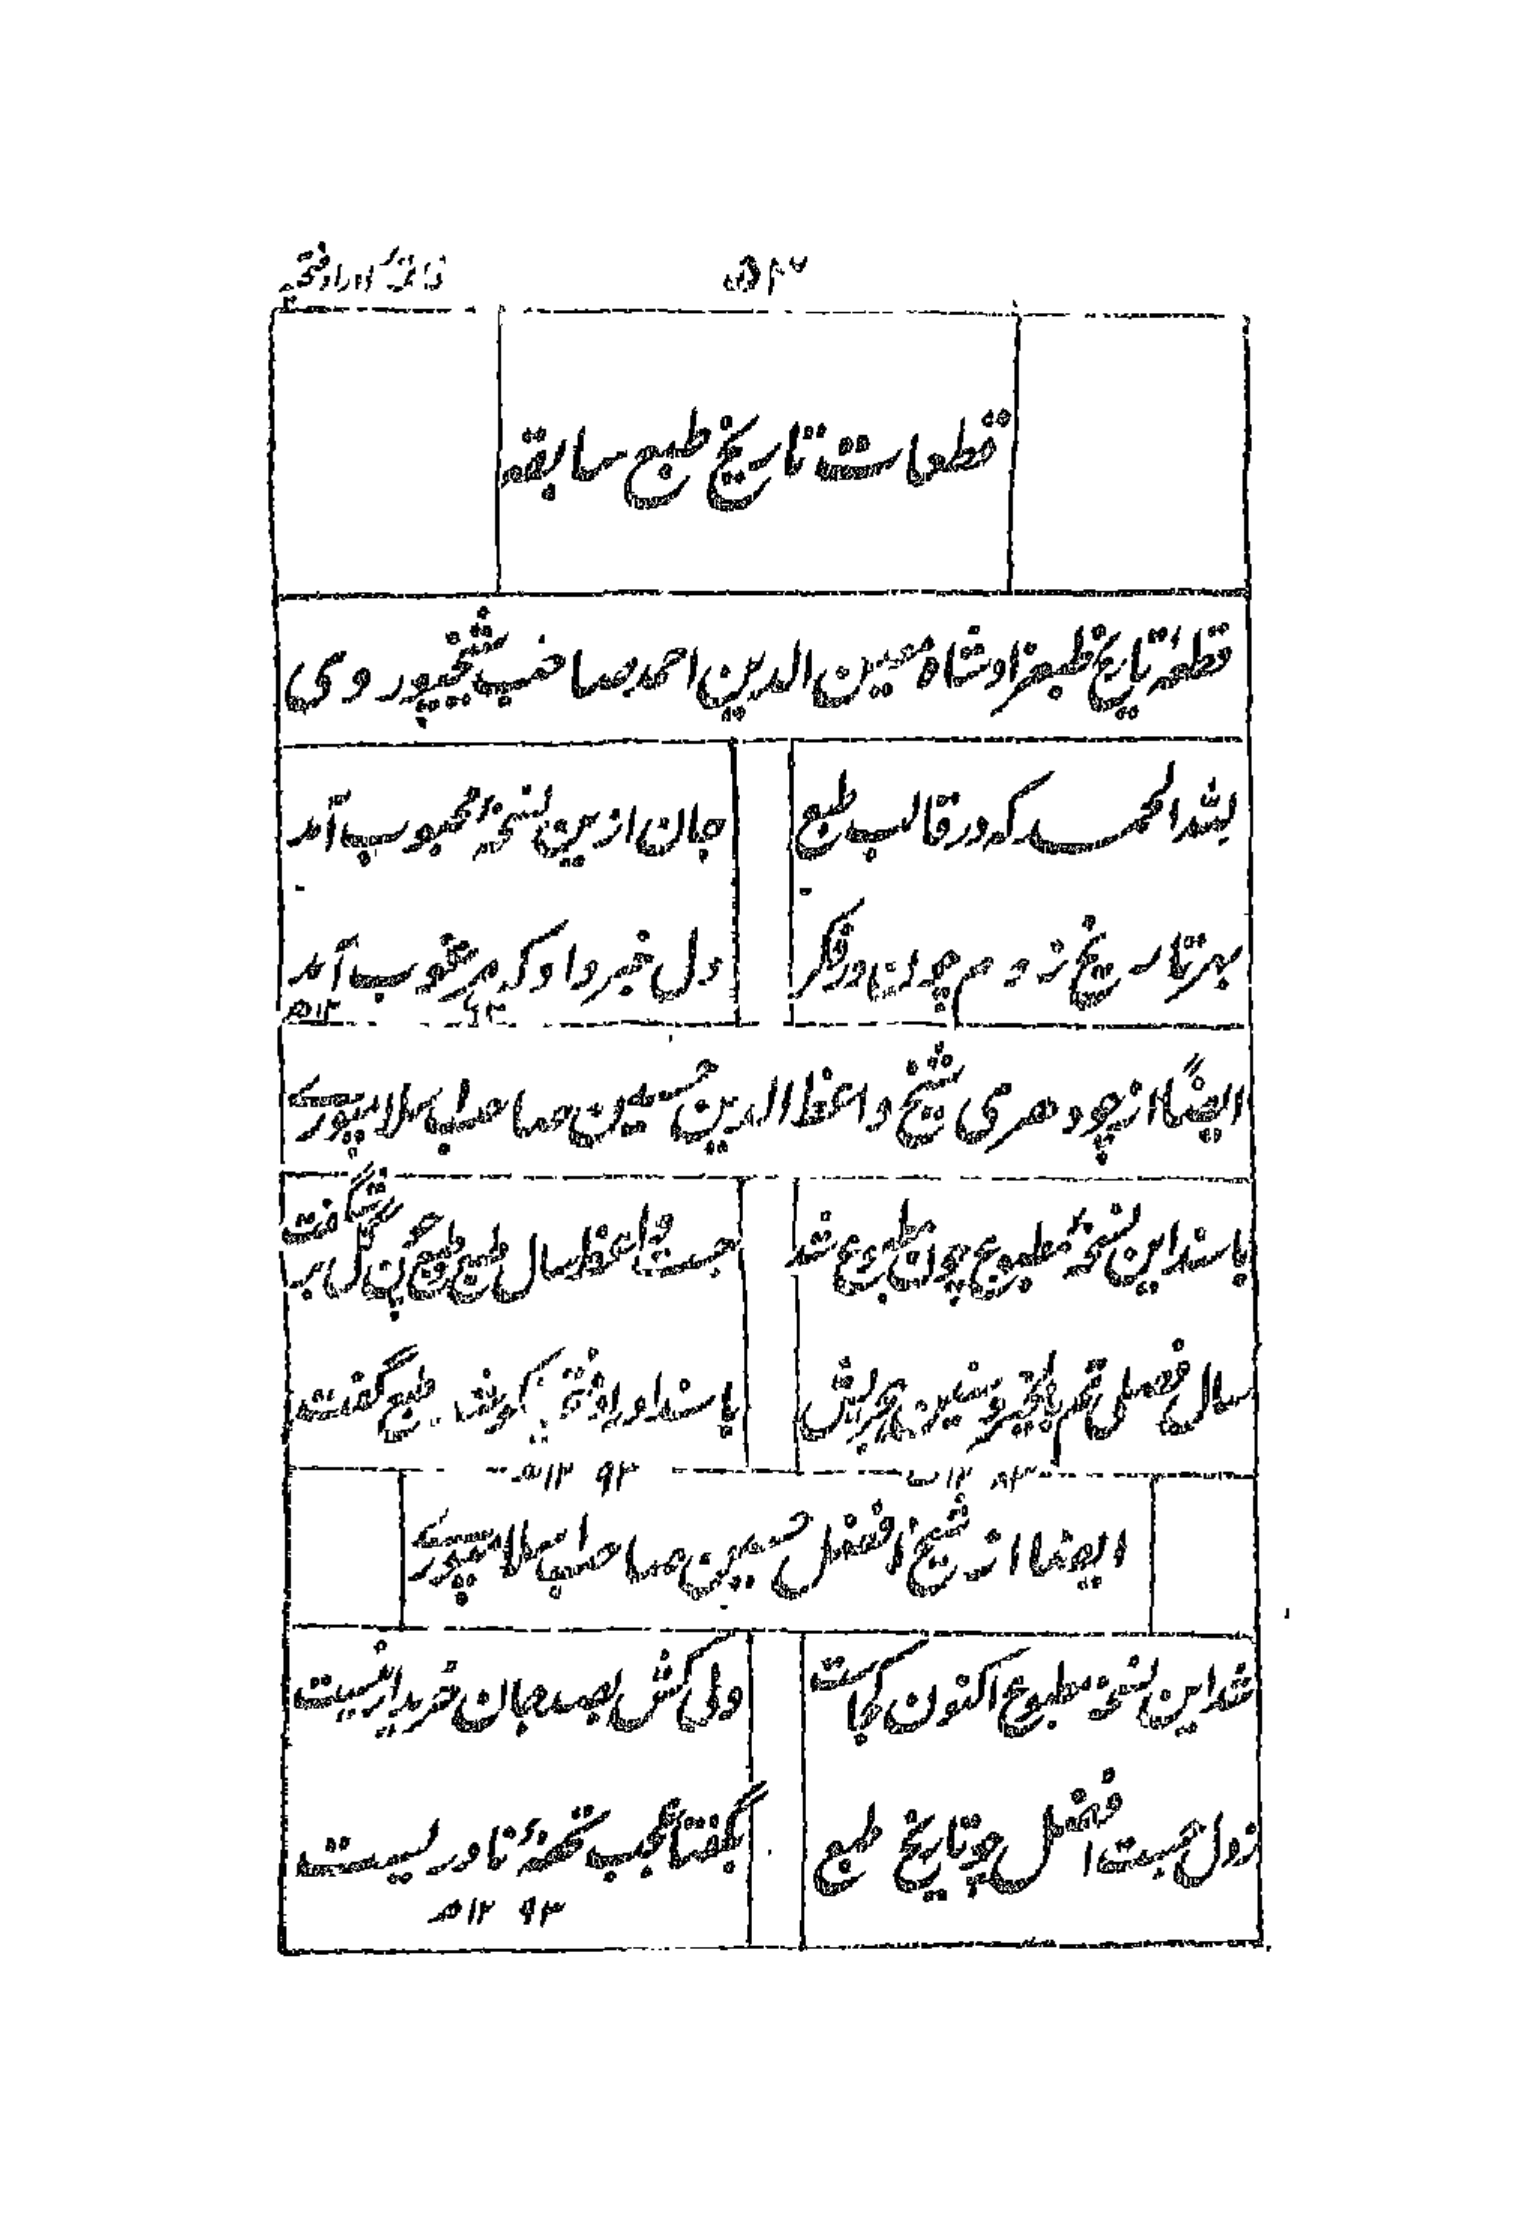 ۵۴۷
قطعات تاریخ طبع سابقه
قطعۂ تاریخ طبعزاد شاه معین الدین احمد صاحب شیخپوروی
لله الحمد که در قالب طبع
جان ازین نسخۂ محبوب آمد
بهر تاریخ زدم چون در فکر
دل خبر داد که مرغوب آمد
ایضًا از چودهری شیخ واعظ الدین حسین صاحب سلامپوری
با سند این نسخۂ مطبوع چون مطبوع شد
جست واعظ سال طبع طبع چون گل بر شگفت
سال فصلی
با سند اوراد فتحیه طبع گفت
۱۲۹۳ھ
ایضا از شیخ افضل حسین صاحب سلامپوری
شد این نسخه مطبوع اکنون کجاست
ولی کش بصد جان خریدار نیست
ز دل جست افضل چو تاریخ طبع
بگفتا عجب تحفۂ نادریست
۱۲۹۳ھ